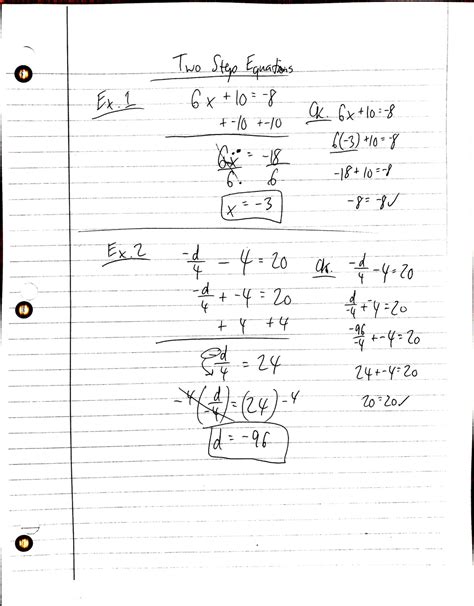 Two Step Equations
Ex. 1
6x + 10 = -8
+ -10 + -10
6x = -18
6 6
x = -3
Ck. 6x + 10 = -8
6(-3) + 10 = -8
-18 + 10 = -8
-8 = -8 ✓
Ex. 2
-d/4 - 4 = 20
-d/4 + -4 = 20
+ 4 + 4
-d/4 = 24
-4(d/-4) = (24) -4
d = -96
Ck. -d/4 - 4 = 20
d/-4 + -4 = 20
-96/-4 + -4 = 20
24 + -4 = 20
20 = 20 ✓